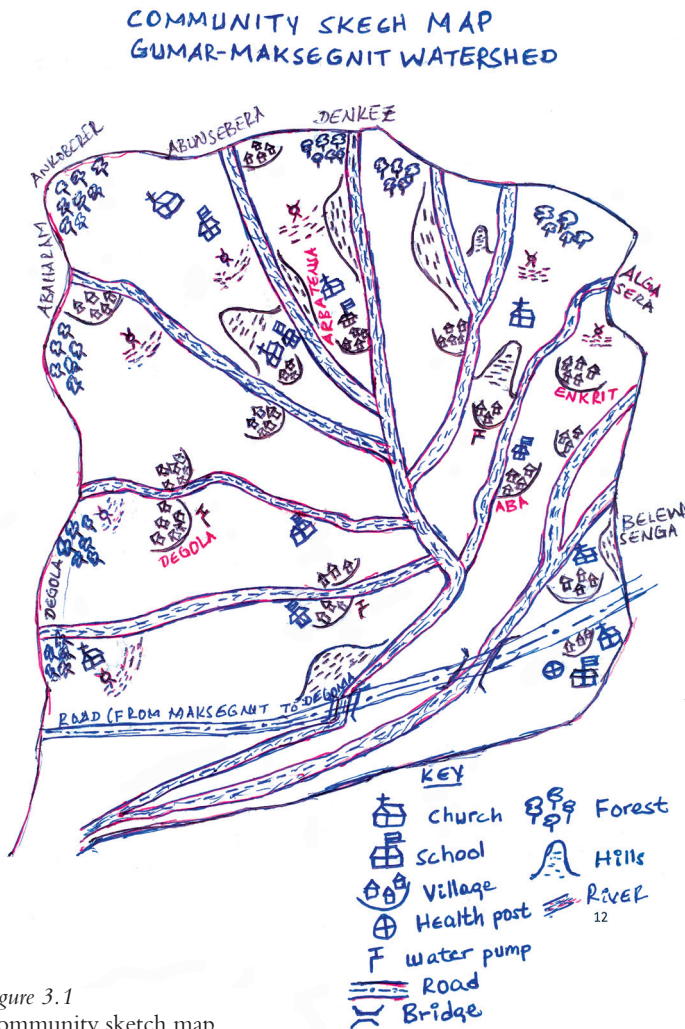 COMMUNITY SKEGH MAP
GUMAR-MAKSEGNIT WATERSHED
DENKEZ
ABUNSEBERA
ANKOBERER
ABAHARAM
ARBATENSA
ALGA
SERA
ENKRIT
ABA
BELEW
SENGA
DEGOLA
DEGOLA
ROAD (FROM MAKSEGNIT TO DEGOMA
KEY
Church
Forest
School
Hills
Village
RIVER
Health post
12
water pump
Road
Bridge
gure 3.1
ommunity sketch map